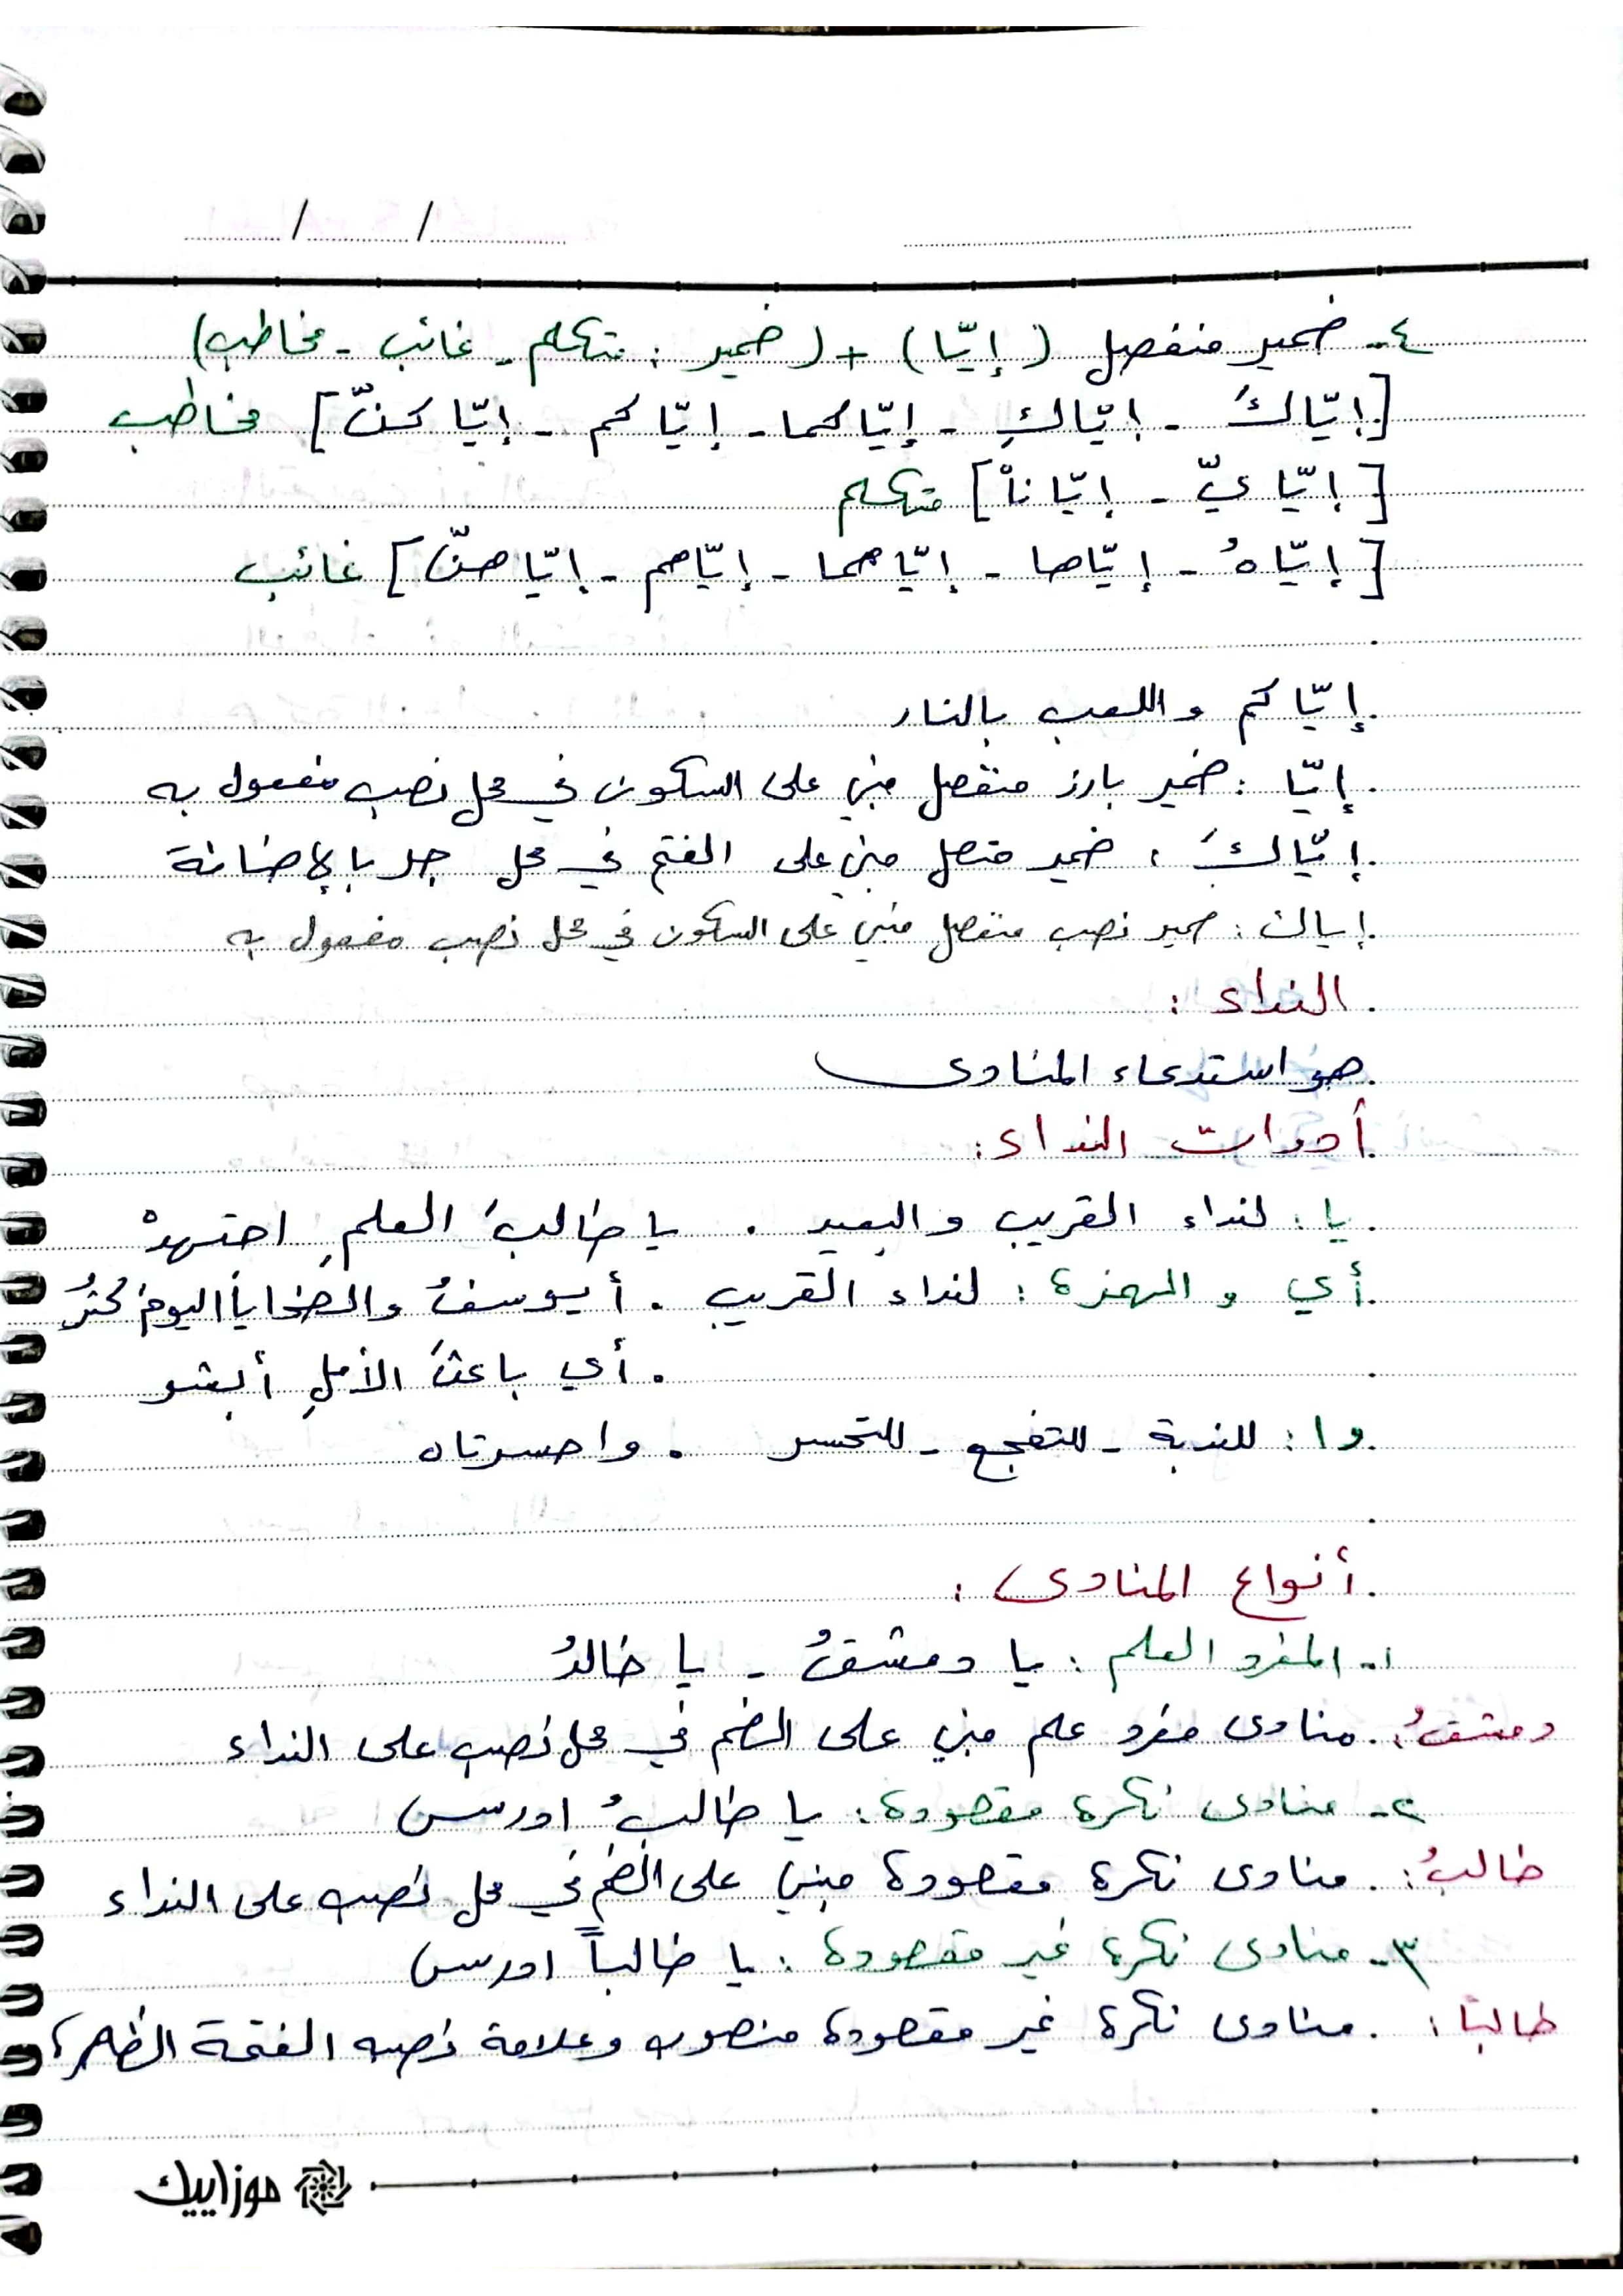 / /
٤- ضمير منفصل (إيّا) + (ضمير : متكلم - غائب - مخاطب)
[إيّاكَ - إيّاكِ - إيّاكما - إيّاكم - إيّاكنّ] مخاطب
[إيّايّ - إيّاناْ] متكلم
[إيّاهُ - إيّاها - إيّاهما - إيّاهم - إيّاهنّ] غائب
إيّاكم واللعب بالنار
إيّا : ضمير بارز منفصل مبني على السكون في محل نصب مفعول به
إيّاكَ : ضمير متصل مبني على الفتح في محل جر بالإضافة
إياك : ضمير نصب منفصل مبني على السكون في محل نصب مفعول به
النداء :
هو استدعاء المنادى
أدوات النداء :
يا : لنداء القريب والبعيد . يا طالبَ العلمِ اجتهدْ
أي و الهمزة : لنداء القريب . أيوسفُ والضحايا اليومَ كثرُ
. أي باعثَ الأملِ أبشر
وا : للندبة - للتفجع - للتحسر . واحسرتاه
أنواع المنادى :
١- المفرد العلم : يا دمشقُ - يا خالدُ
دمشقُ : منادى مفرد علم مبني على الضم في محل نصب على النداء
٢- منادى نكرة مقصودة : يا طالبُ ادرس
طالبُ : منادى نكرة مقصودة مبني على الضم في محل نصب على النداء
٣- منادى نكرة غير مقصودة : يا طالباً ادرس
طالباً : منادى نكرة غير مقصودة منصوب وعلامة نصبه الفتحة الظاهرة
موزاييك